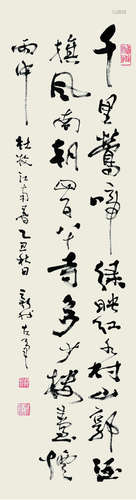 千里莺啼绿映红水村山郭酒
旗风南朝四百八十寺多少楼台烟
雨中
杜牧江南春乙丑秋日